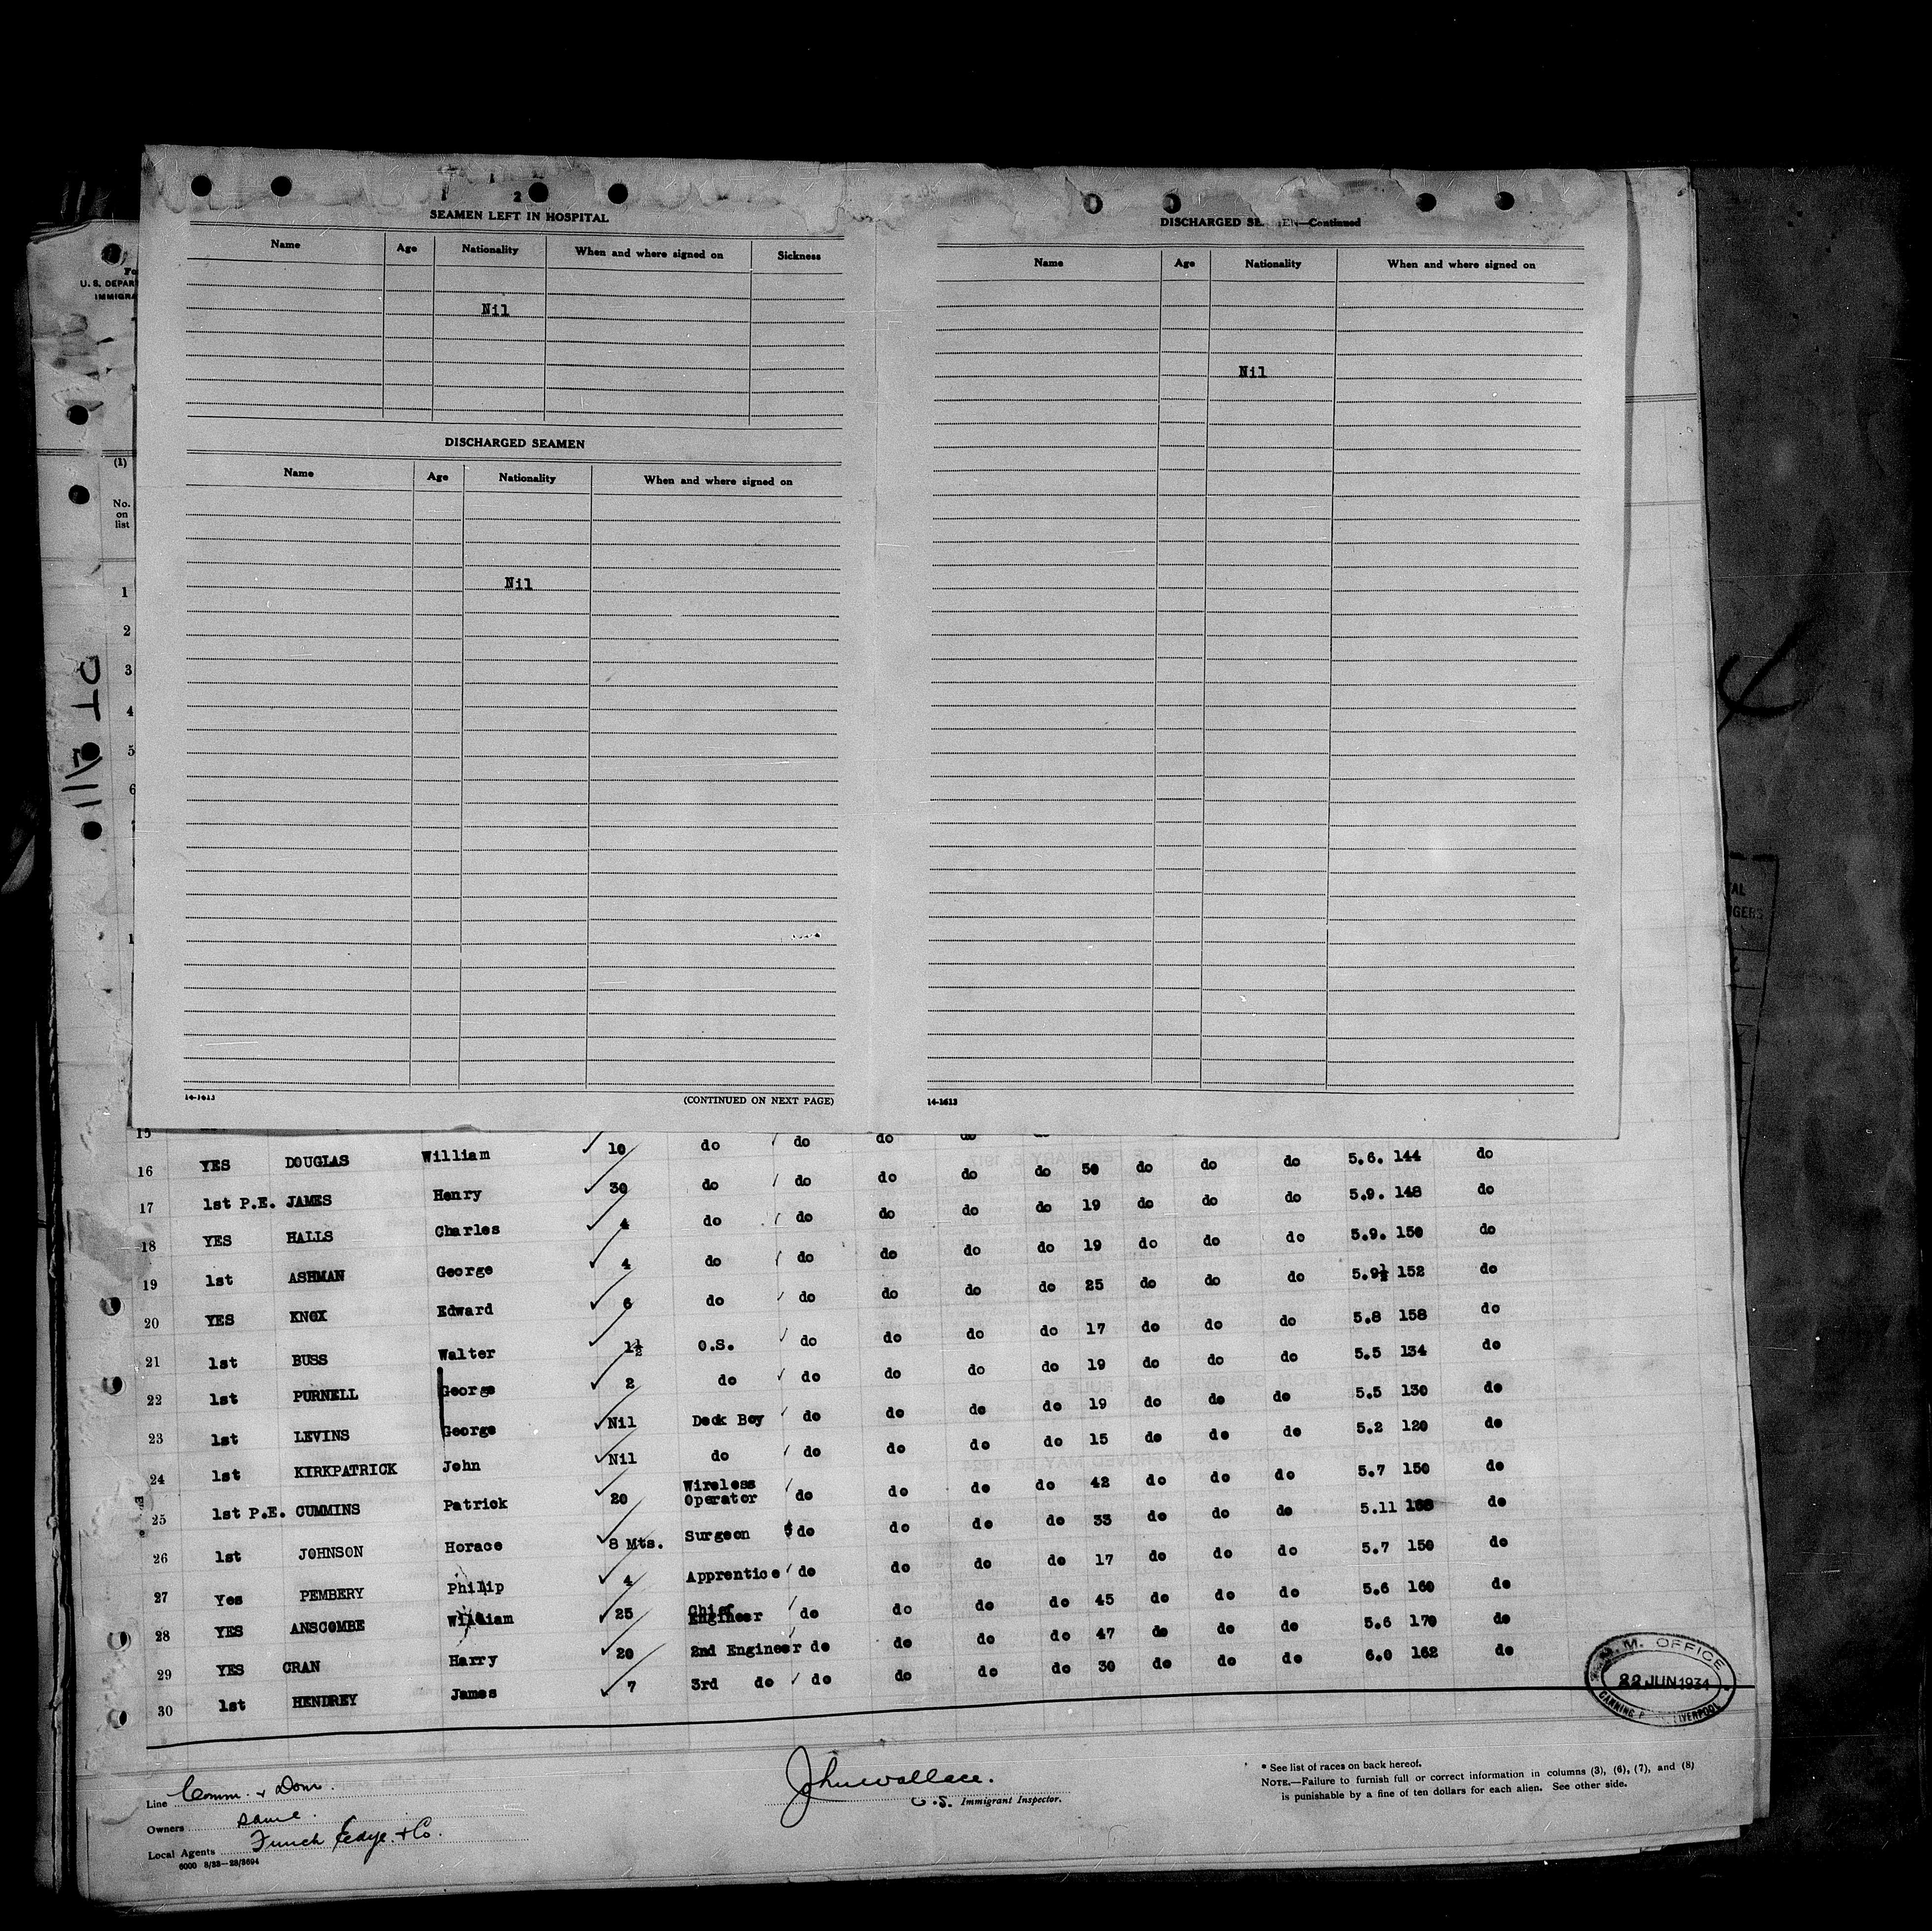 SEAMEN LEFT IN HOSPITAL
Name Age Nationality When and where signed on Sickness
Nil
DISCHARGED SEAMEN
Name Age Nationality When and where signed on
Nil
14-1613 (CONTINUED ON NEXT PAGE)
DISCHARGED SE EN—Continued
Name Age Nationality When and where signed on
Nil
14-1613
U. S. DEPAR
IMMIGRA
(1)
No. on list
1
2
3
4
5
6
15
16 YES DOUGLAS William 10 do do do do do 50 do do do 5.6. 144 do
17 1st P.E. JAMES Henry 30 do do do do do 19 do do do 5.9. 148 do
18 YES HALLS Charles 4 do do do do do 19 do do do 5.9. 150 do
19 1st ASHMAN George 4 do do do do do 25 do do do 5.9½ 152 do
20 YES KNOX Edward 6 do do do do do 17 do do do 5.8 158 do
21 1st BUSS Walter 1½ O.S. do do do do 19 do do do 5.5 134 do
22 1st PURNELL George 2 do do do do do 19 do do do 5.5 130 do
23 1st LEVINS George Nil Deck Boy do do do do 15 do do do 5.2 120 do
24 1st KIRKPATRICK John Nil do do do do do 42 do do do 5.7 150 do
25 1st P.E. CUMMINS Patrick 20 Wireless Operator do do do do 33 do do do 5.11 do
26 1st JOHNSON Horace 8 Mts. Surgeon do do do do 17 do do do 5.7 150 do
27 Yes PEMBERY Philip 4 Apprentice do do do do 45 do do do 5.6 160 do
28 YES ANSCOMBE William 25 Chief Engineer do do do do 47 do do do 5.6 170 do
29 YES CRAN Harry 20 2nd Engineer do do do do 30 do do do 6.0 162 do
30 1st HENDREY James 7 3rd do do
M. OFFICE
22 JUN 1934
CANNING P LIVERPOOL
Line Comm. + Dom.
Owners same.
Local Agents Funch Edye. + Co.
6000 8/33—28/3694
John Wallace.
U.S. Immigrant Inspector.
* See list of races on back hereof.
NOTE.—Failure to furnish full or correct information in columns (3), (6), (7), and (8)
is punishable by a fine of ten dollars for each alien. See other side.